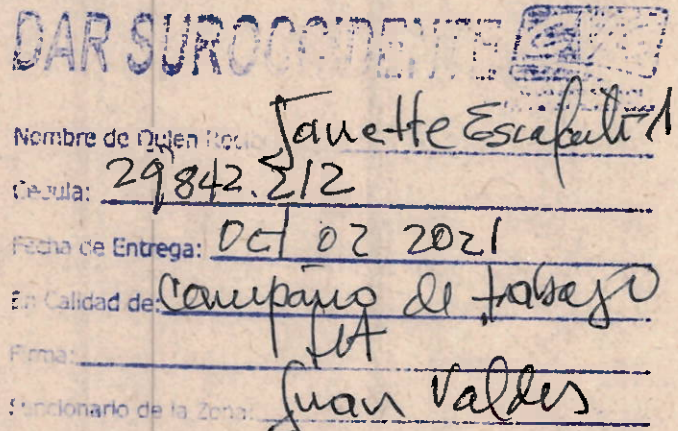 DAR SUROCCIDENTE
Nombre de Quien Recibe Janette
Cedula: 29,842.212
Fecha de Entrega: Oct 02 2021
En Calidad de: Compañio de trabajo
Firma:
Funcionario de la Zona: Juan Valdes